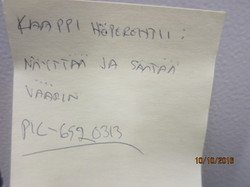 KAAPPI HÖPERÖNTII:
NÄYTTÄÄ JA SÄÄTÄÄ
VÄÄRIN
PIC-692 0313
10/10/2016